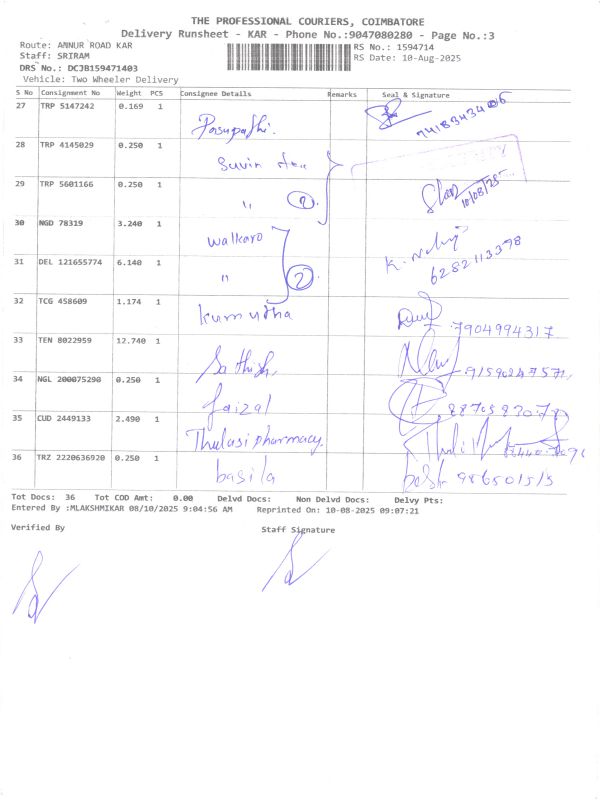 THE PROFESSIONAL COURIERS, COIMBATORE
Delivery Runsheet - KAR - Phone No.:9047080280 - Page No.:3
Route: ANNUR ROAD KAR
RS No.: 1594714
Staff: SRIRAM
RS Date: 10-Aug-2025
DRS No.: DCJB159471403
Vehicle: Two Wheeler Delivery
S No Consignment No Weight PCS Consignee Details Remarks Seal & Signature
27 TRP 5147242 0.169 1 Pasupathi. 7418343406
28 TRP 4145029 0.250 1
29 TRP 5601166 0.250 1 " 2 10/08/25
30 NGD 78319 3.240 1 Walkaro
31 DEL 121655774 6.140 1 " 2 6282113398
32 TCG 458609 1.174 1 kumutha 7904994317
33 TEN 8022959 12.740 1 Sathish 9159024757
34 NGL 200075290 0.250 1 faizal
35 CUD 2449133 2.490 1 Thulasi pharmacy.
36 TRZ 2220636920 0.250 1 basila
Tot Docs: 36 Tot COD Amt: 0.00 Delvd Docs: Non Delvd Docs: Delvy Pts:
Entered By :MLAKSHMIKAR 08/10/2025 9:04:56 AM Reprinted On: 10-08-2025 09:07:21
Verified By Staff Signature